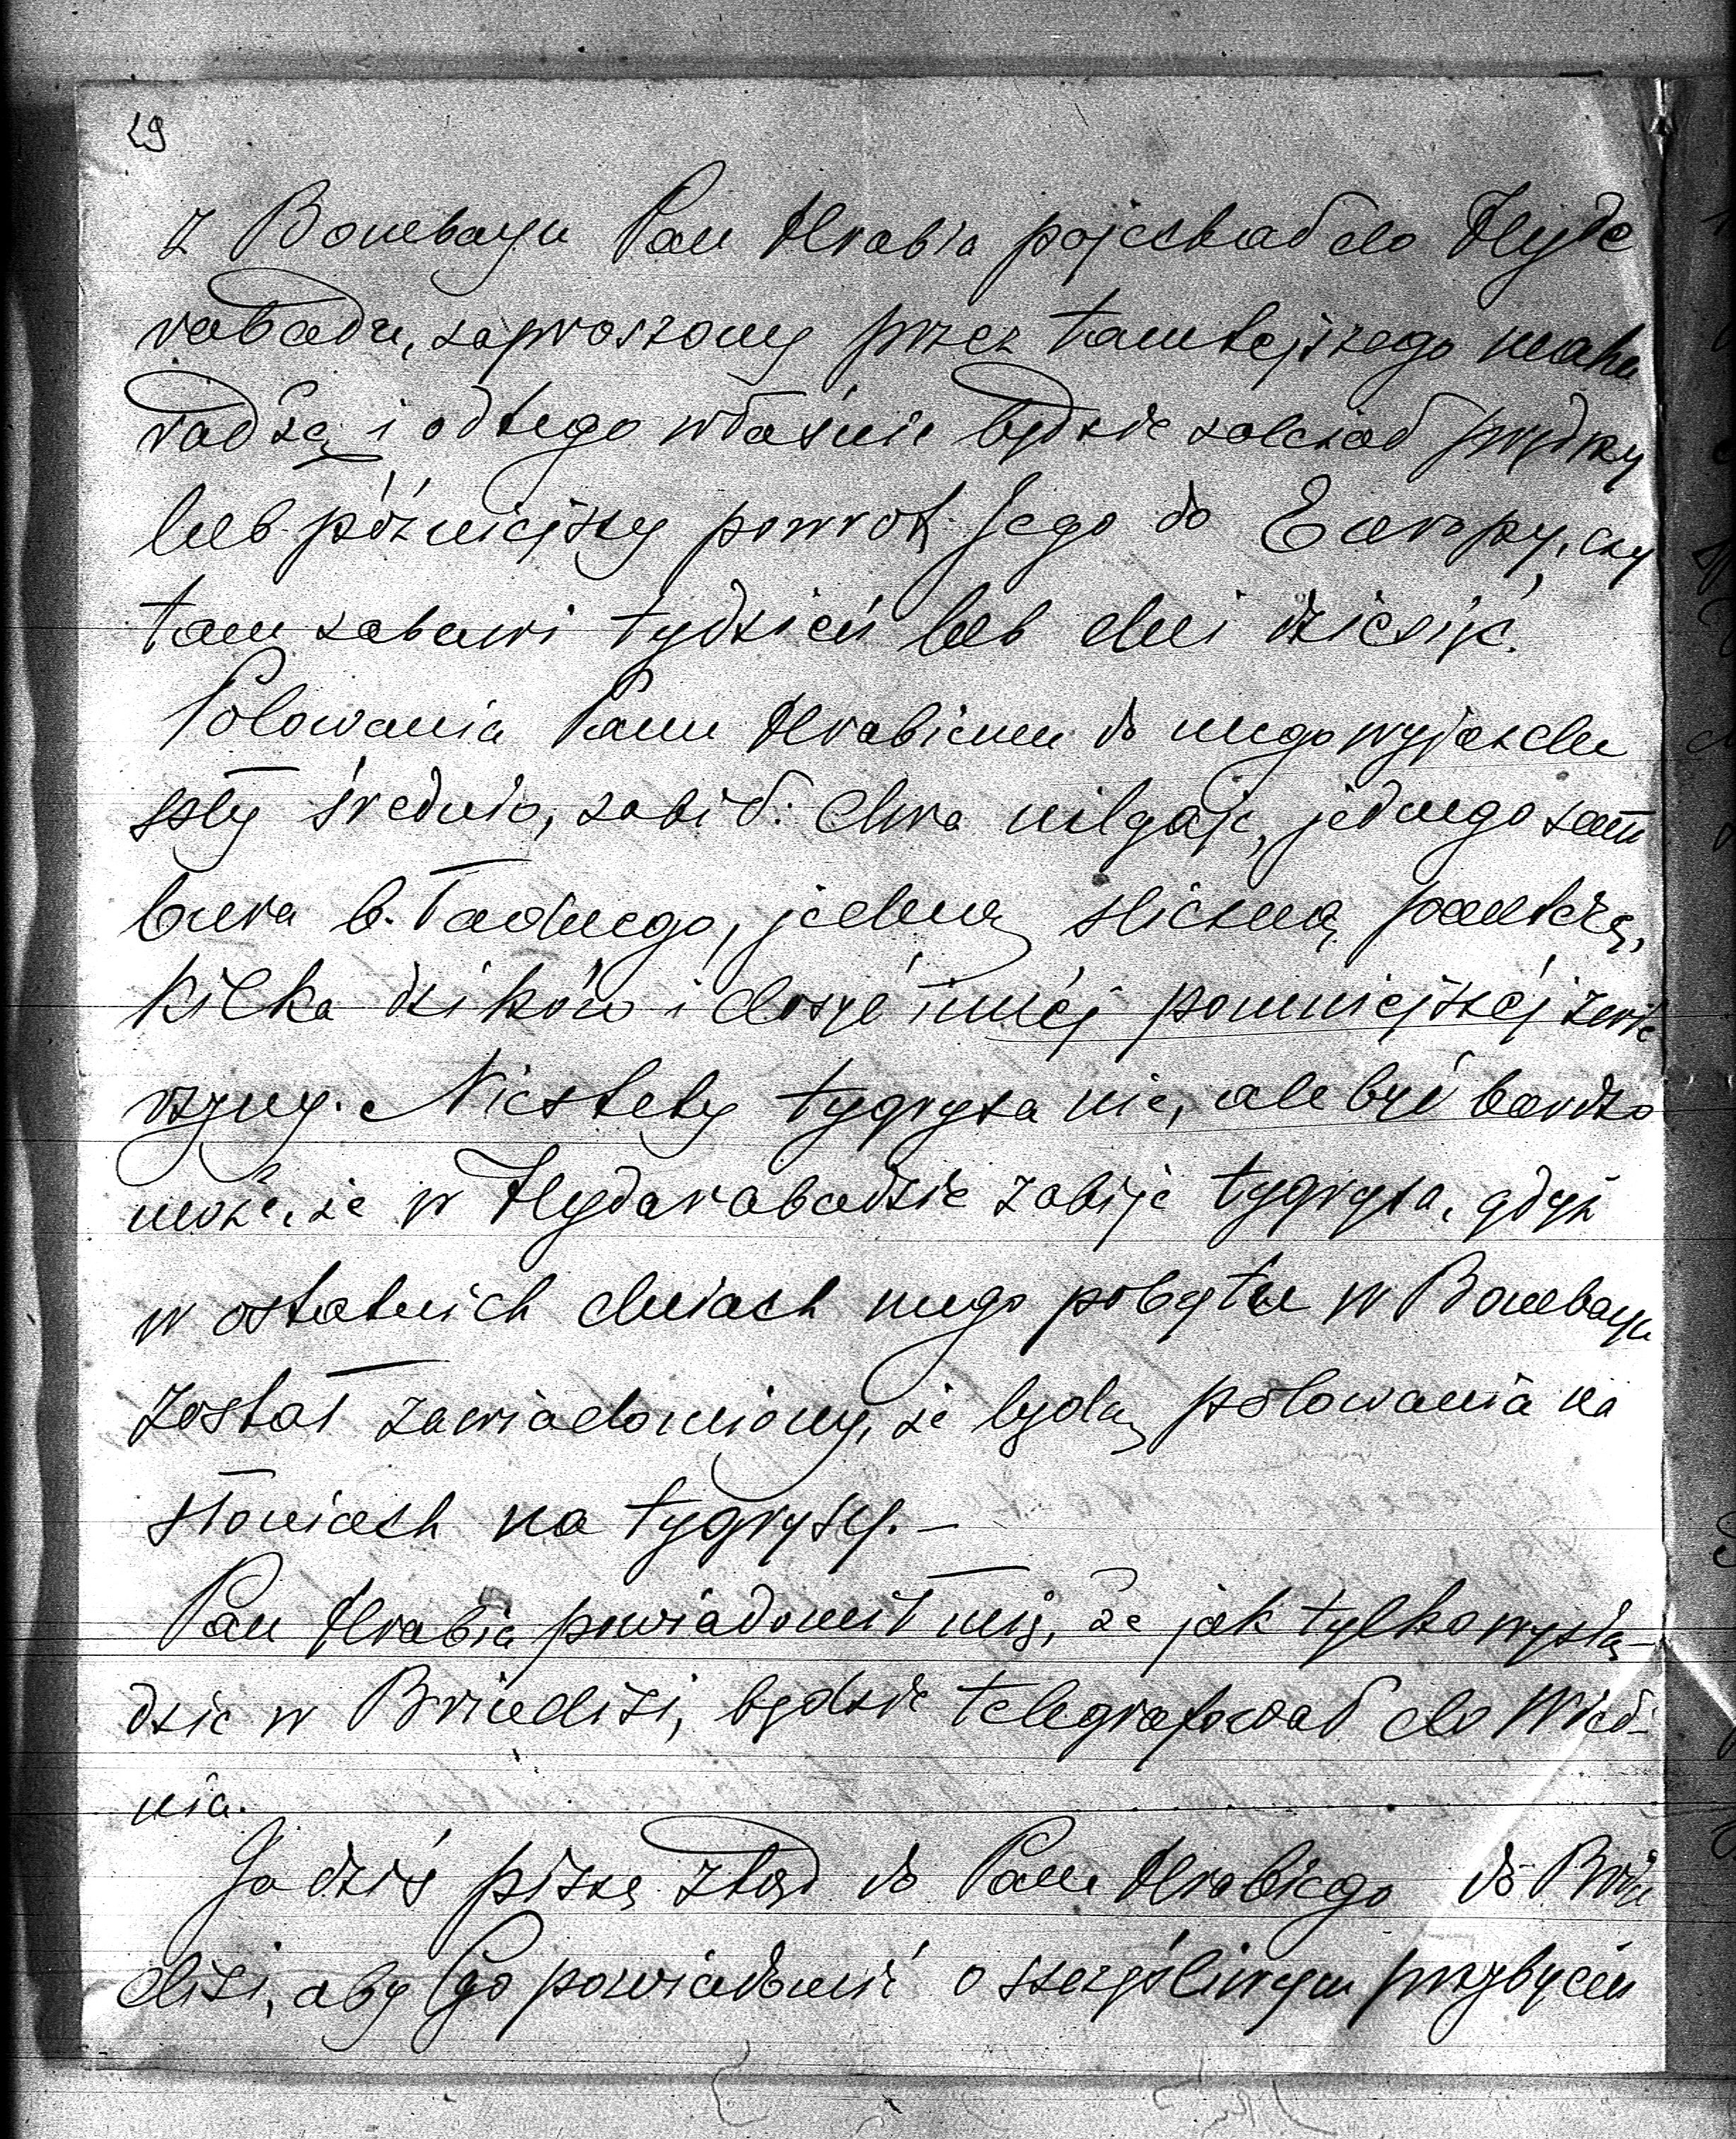 29
Z Bombayu Pan Hrabia pojechał do Hyde
rabadu, zaproszony przez tamtejszego maha
radżę i od tego właśnie będzie zależał prędszy
lub późniejszy powrót Jego do Europy, czy
tam zabawi tydzień lub dni dziesięć.
Polowania Panu Hrabiemu do mego wyjazdu
szły średnio, zabił: dwa nilgaje, jednego sam
bura b. ładnego, jedną śliczną panterę,
kilka dzików i dosyć innéj pomniejszéj zwie
rzyny. Niestety tygrysa nie, ale być bardzo
może, że w Hydarabadzie zabije tygrysa, gdyż
w ostatnich dniach mego pobytu w Bombayu
został zawiadomiony, że będą polowania na
słoniach na tygrysy. –
Pan Hrabia powiadomił mię, że jak tylko wysią-
dzie w Brindisi, będzie telegrafował do Wied-
nia.
Ja dziś piszę ztąd do Pana Hrabiego do Brin
disi, aby Go powiadomić o szczęśliwym przybyciu